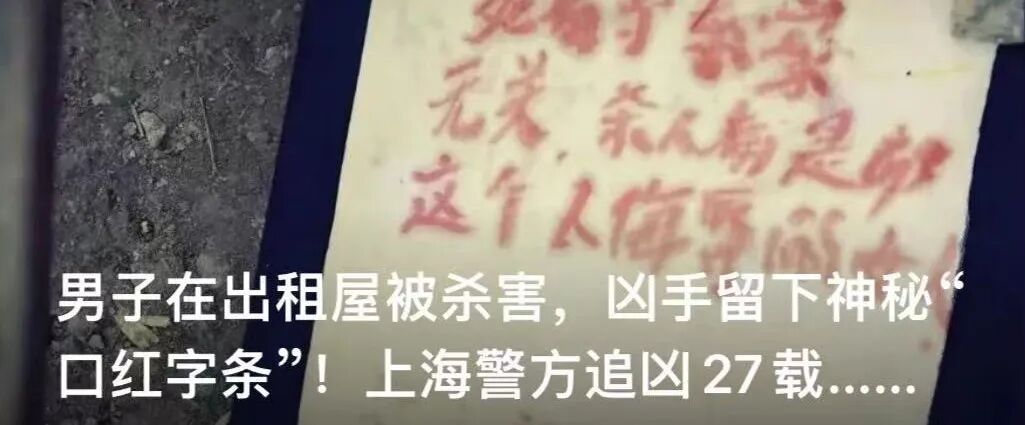 无关，杀人者是
这个人侮辱的
男子在出租屋被杀害，凶手留下神秘“
口红字条”！上海警方追凶27载……